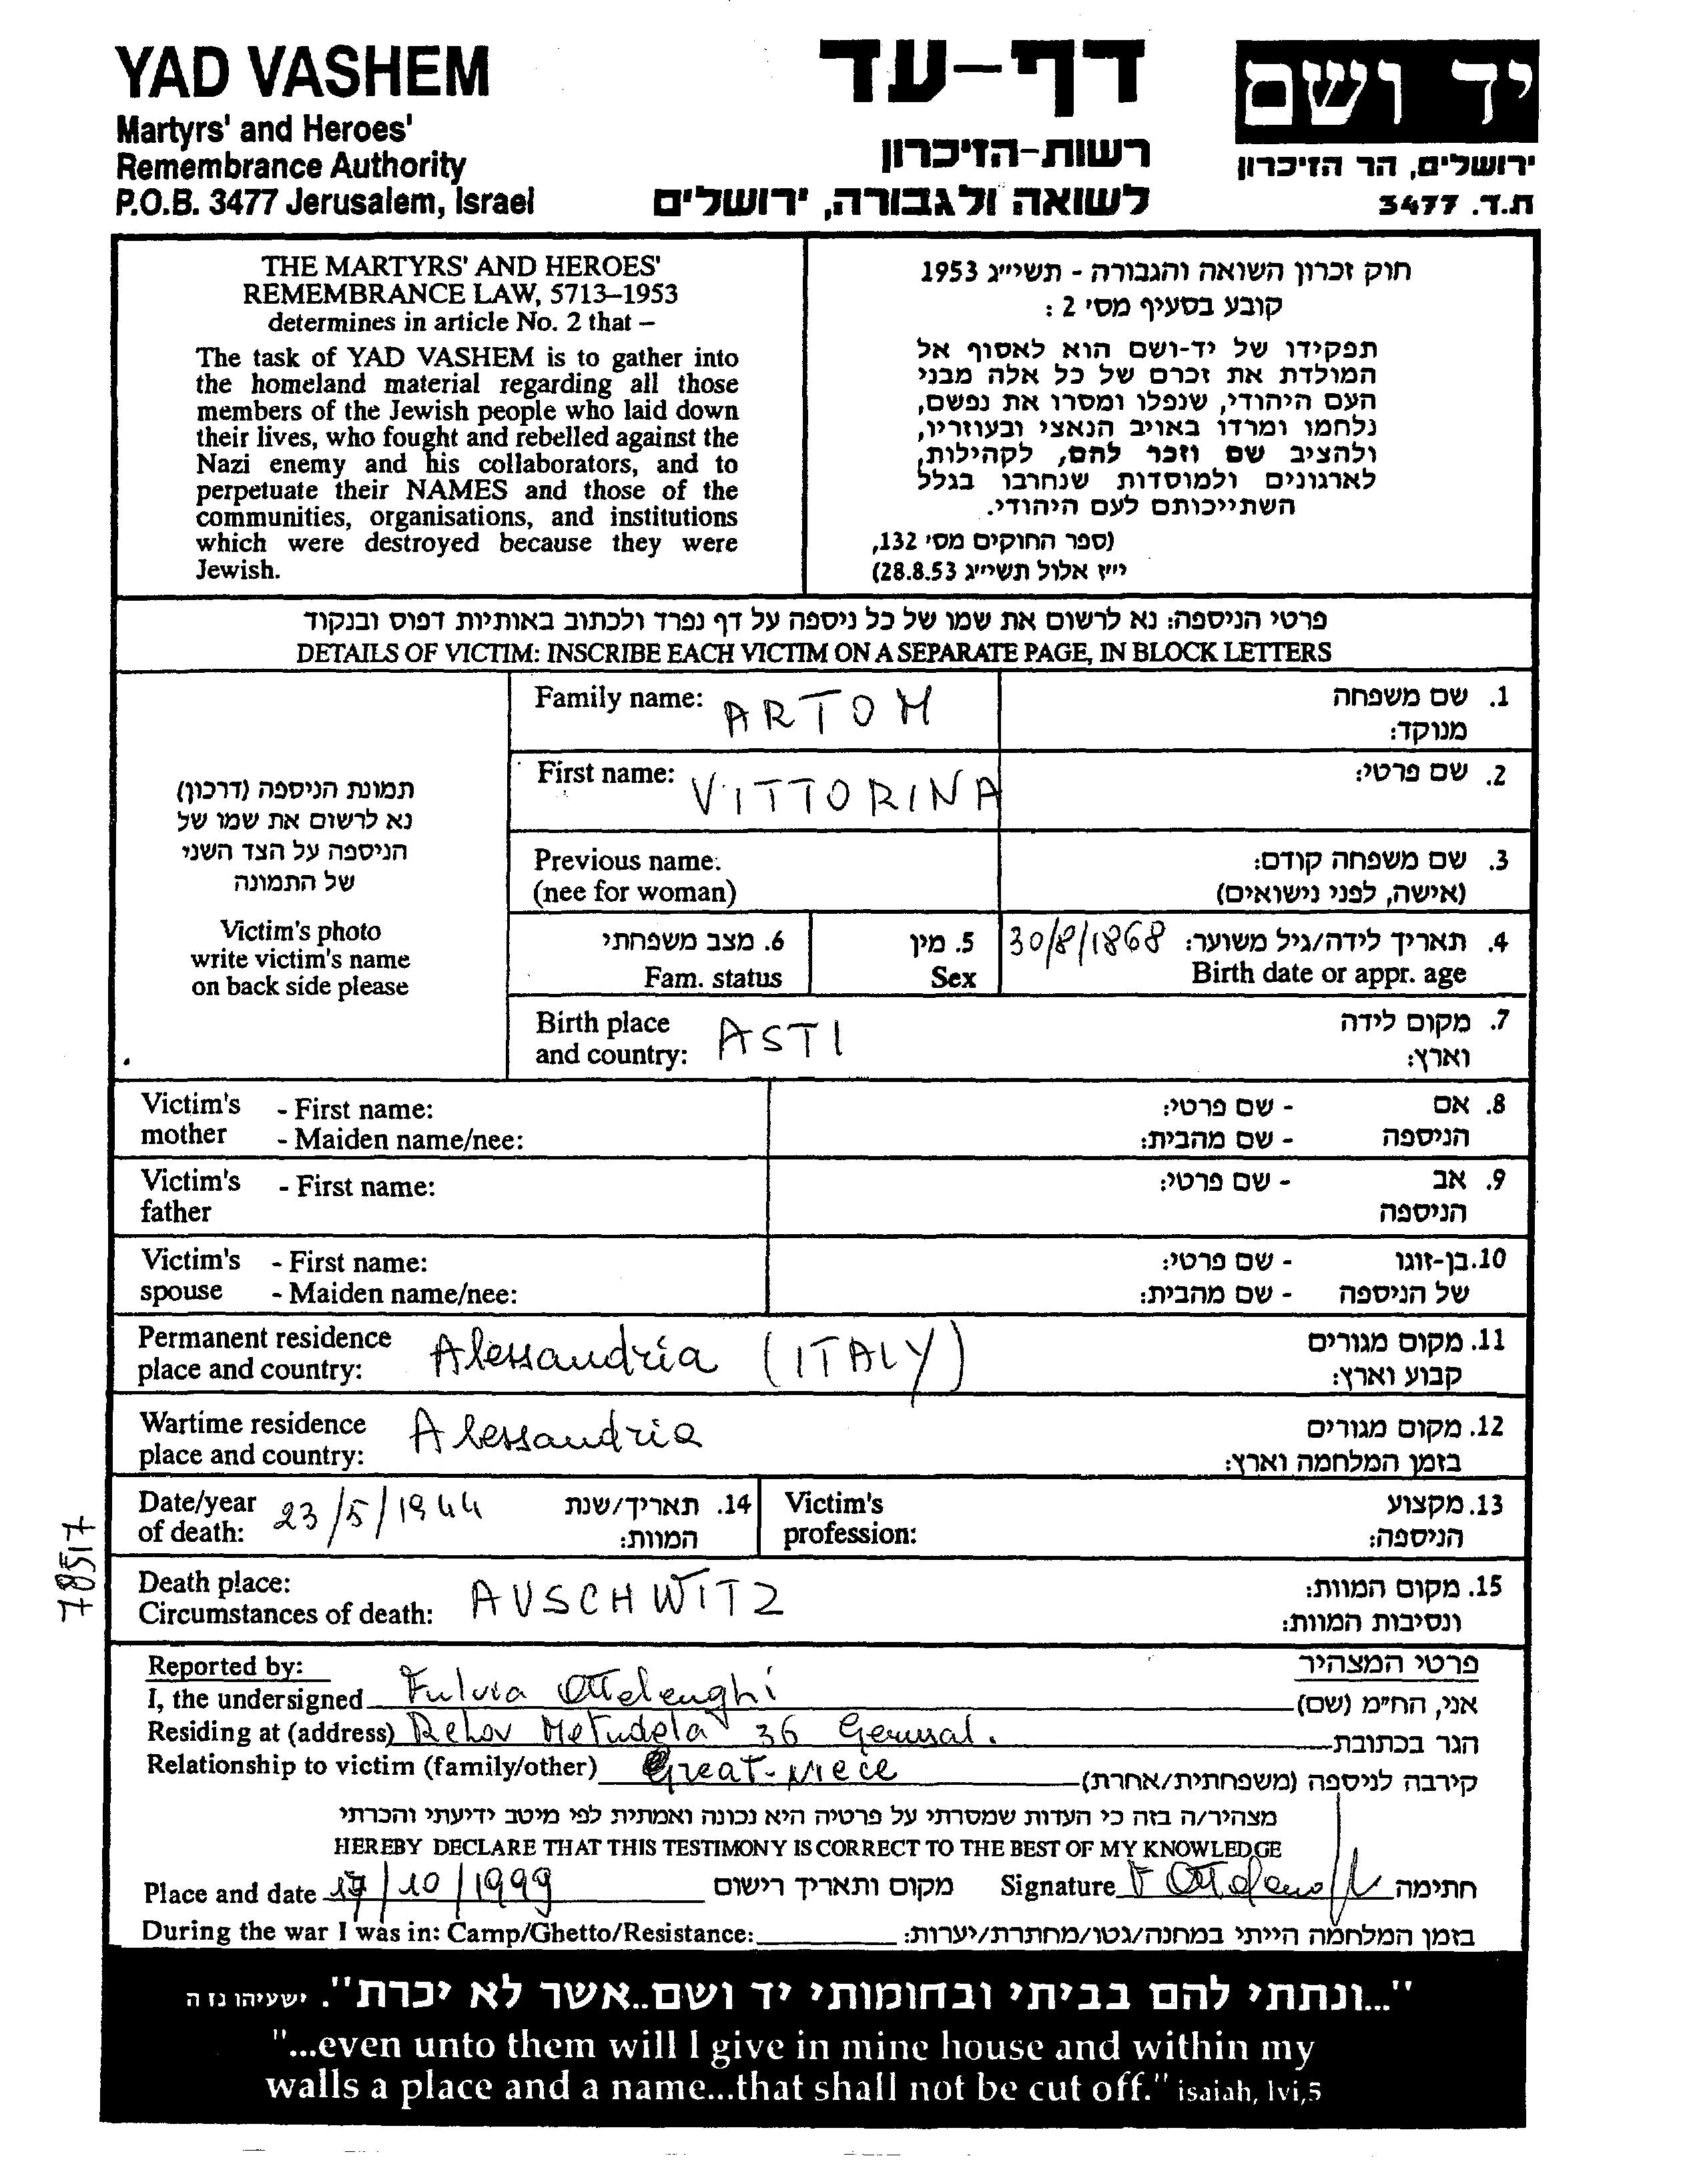 YAD VASHEM
Martyrs' and Heroes'
Remembrance Authority
P.O.B. 3477 Jerusalem, Israel
דף-עד
רשות-הזיכרון
לשואה ולגבורה, ירושלים
יד ושם
ירושלים, הר הזיכרון
ת.ד. 3477
THE MARTYRS' AND HEROES'
REMEMBRANCE LAW, 5713–1953
determines in article No. 2 that –
The task of YAD VASHEM is to gather into
the homeland material regarding all those
members of the Jewish people who laid down
their lives, who fought and rebelled against the
Nazi enemy and his collaborators, and to
perpetuate their NAMES and those of the
communities, organisations, and institutions
which were destroyed because they were
Jewish.
חוק זכרון השואה והגבורה - תשי״ג 1953
קובע בסעיף מס׳ 2 :
תפקידו של יד-ושם הוא לאסוף אל
המולדת את זכרם של כל אלה מבני
העם היהודי, שנפלו ומסרו את נפשם,
נלחמו ומרדו באויב הנאצי ובעוזריו,
ולהציב שם וזכר להם, לקהילות,
לארגונים ולמוסדות שנחרבו בגלל
השתייכותם לעם היהודי.
(ספר החוקים מס׳ 132,
י״ז אלול תשי״ג 28.8.53)
פרטי הניספה: נא לרשום את שמו של כל ניספה על דף נפרד ולכתוב באותיות דפוס ובנקוד
DETAILS OF VICTIM: INSCRIBE EACH VICTIM ON A SEPARATE PAGE, IN BLOCK LETTERS
תמונת הניספה (דרכון)
נא לרשום את שמו של
הניספה על הצד השני
של התמונה
Victim's photo
write victim's name
on back side please
Family name: ARTOM 1. שם משפחה
מנוקד:
First name: VITTORINA 2. שם פרטי:
Previous name: 3. שם משפחה קודם:
(nee for woman) (אישה, לפני נישואים)
6. מצב משפחתי 5. מין 30/8/1868 4. תאריך לידה/גיל משוער:
Fam. status Sex Birth date or appr. age
Birth place ASTI 7. מקום לידה
and country: וארץ:
Victim's - First name: - שם פרטי: 8. אם
mother - Maiden name/nee: - שם מהבית: הניספה
Victim's - First name: - שם פרטי: 9. אב
father הניספה
Victim's - First name: - שם פרטי: 10. בן-זוגו
spouse - Maiden name/nee: - שם מהבית: של הניספה
Permanent residence Alessandria (ITALY) 11. מקום מגורים
place and country: קבוע וארץ:
Wartime residence Alessandria 12. מקום מגורים
place and country: בזמן המלחמה וארץ:
Date/year 23/5/1944 14. תאריך/שנת Victim's 13. מקצוע
of death: המוות: profession: הניספה:
78517
Death place: AUSCHWITZ 15. מקום המוות:
Circumstances of death: ונסיבות המוות:
Reported by: פרטי המצהיר
I, the undersigned Fulvia Ottolenghi אני, הח״מ (שם)
Residing at (address) Rehov Metudela 36 Gerusal. הגר בכתובת
Relationship to victim (family/other) Great-niece קירבה לניספה (משפחתית/אחרת)
מצהיר/ה בזה כי העדות שמסרתי על פרטיה היא נכונה ואמתית לפי מיטב ידיעתי והכרתי
HEREBY DECLARE THAT THIS TESTIMONY IS CORRECT TO THE BEST OF MY KNOWLEDGE
Place and date 17/10/1999 מקום ותאריך רישום Signature F Ottolenghi חתימה
During the war I was in: Camp/Ghetto/Resistance: בזמן המלחמה הייתי במחנה/גטו/מחתרת/יערות:
"...ונתתי להם בביתי ובחומותי יד ושם..אשר לא יכרת". ישעיהו נז ה
"...even unto them will I give in mine house and within my
walls a place and a name...that shall not be cut off." isaiah, lvi,5